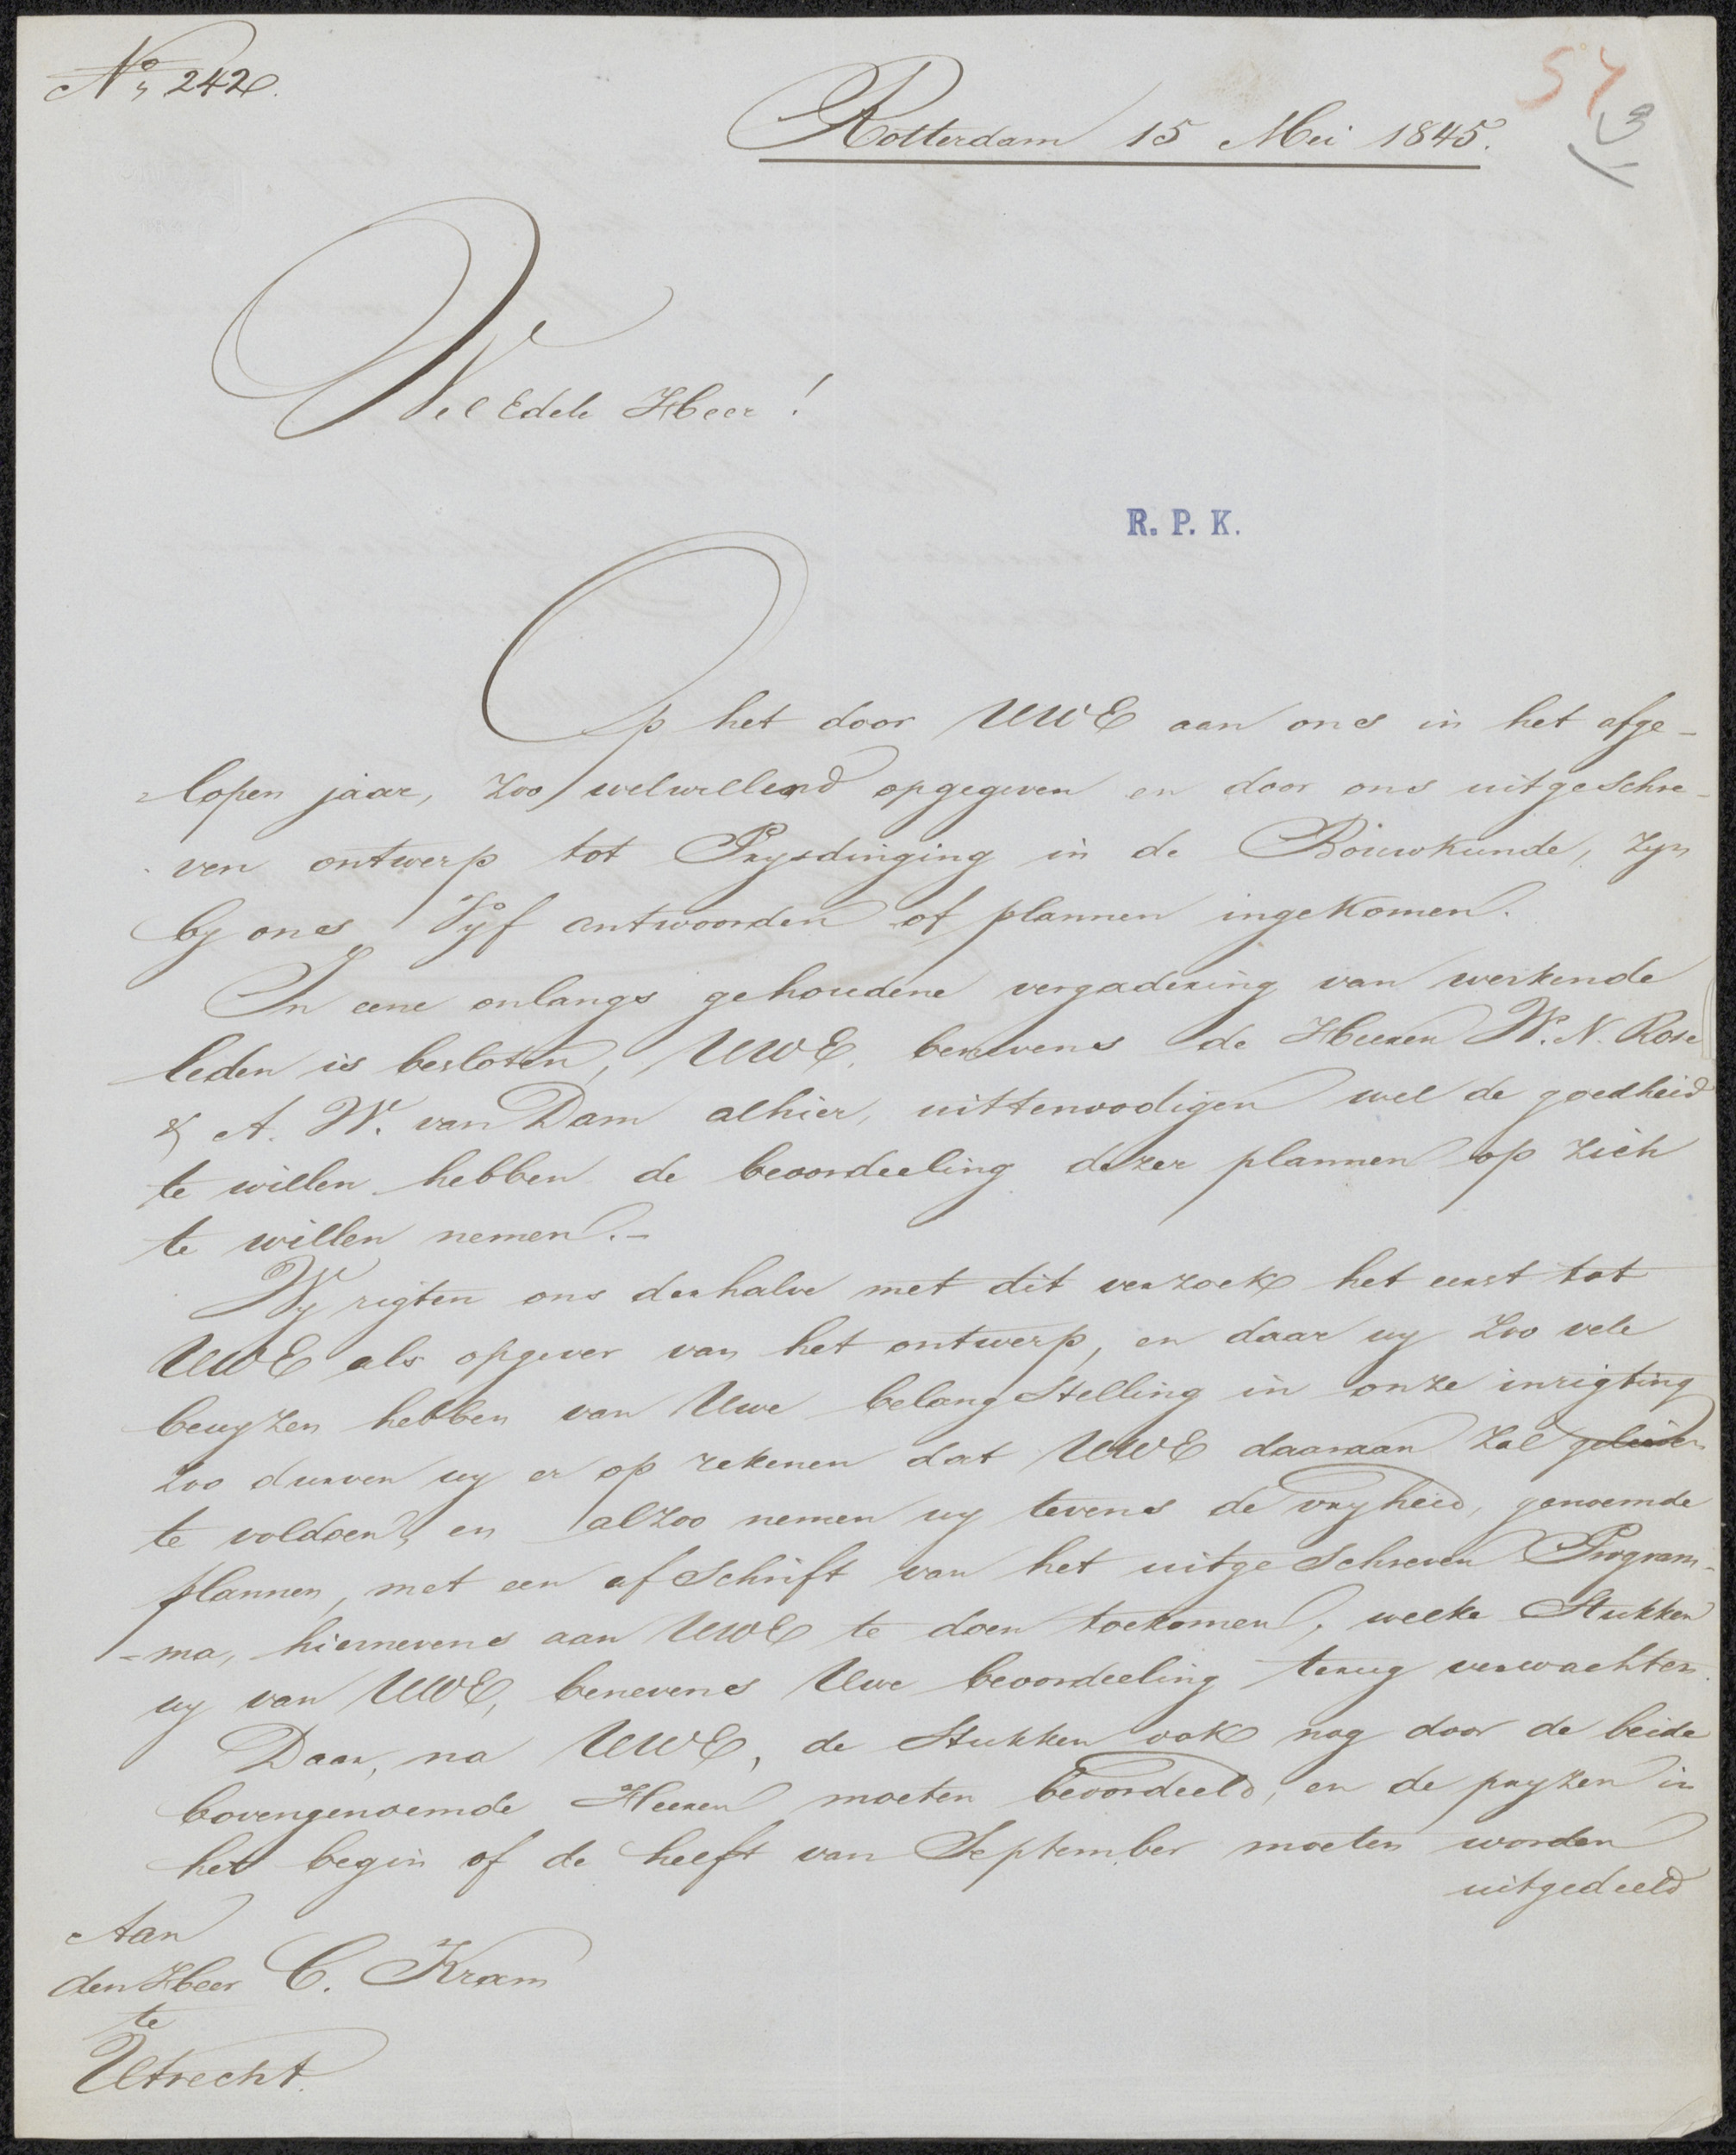 No, 242.
57
3
Rotterdam 15 Mei 1845.
WelEdele Heer!
R. P. K.
Op het door UWE aan ons in het afge-
=lopen jaar, zoo welwillend opgegeven en door ons uitgeschre-
ven ontwerp tot Prysdinging in de Bouwkunde, zyn
by ons Vyf antwoorden of plannen ingekomen.
In eene onlangs gehoudene vergadering van werkende
leden is besloten, UWE. benevens de Heeren W. N. Rose
& A. W. van Dam alhier, uittenoodigen wel de goedheid
te willen hebben de beoordeeling dezer plannen op zich
te willen nemen.-
Wy rigten ons derhalve met dit verzoek het eerst tot
UWE als opgever van het ontwerp, en daar wy zoo vele
bewyzen hebben van Uwe belangstelling in onze inrigting
zoo durven wy er op rekenen dat UWE daaraan zal gelieven
te voldoen, en alzoo nemen wy tevens de vryheid, genoemde
plannen, met een afschrift van het uitgeschreven Program-
=ma, hiernevens aan UWE te doen toekomen, welke Stukken
wy van UWE, benevens Uwe beoordeeling terug verwachten.
Daar, na UWE, de Stukken ook nog door de beide
bovengenoemde Heeren moeten beoordeeld, en de pryzen in
het begin of de helft van September moeten worden
uitgedeeld
Aan
den Heer C. Kram
te
Utrecht.